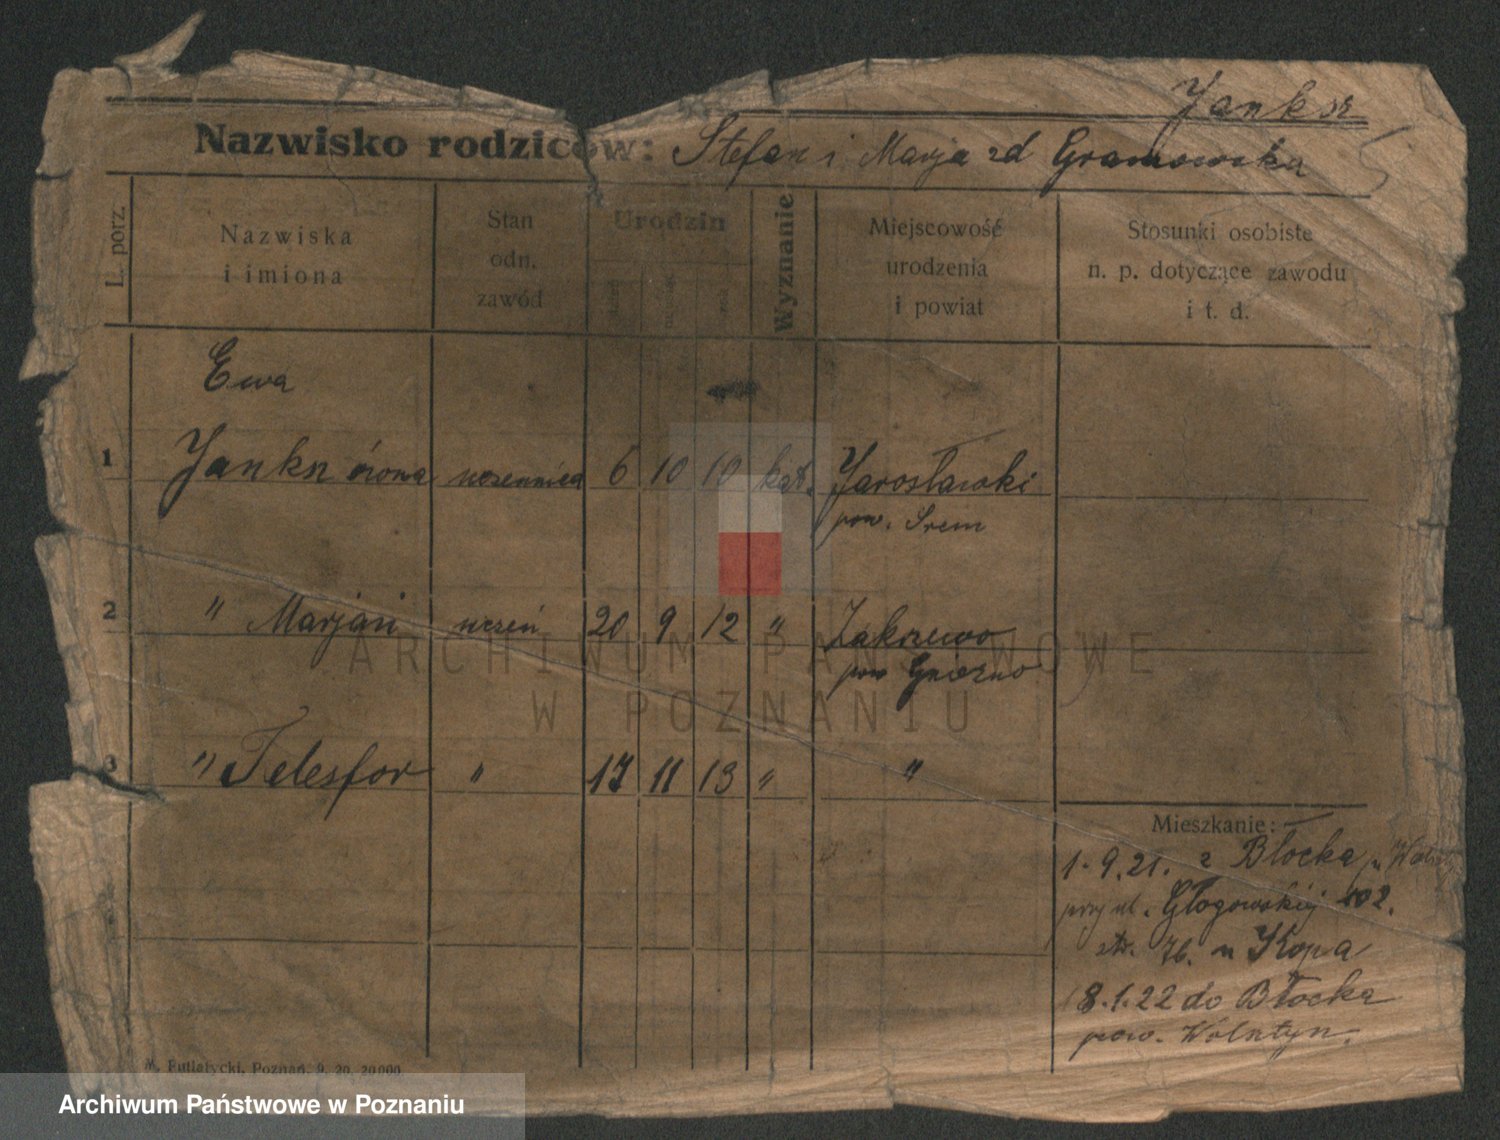 Janksz
Nazwisko rodziców: Stefan i Marja zd Gramowska
L. porz.
Nazwiska
i imiona
Stan
odn.
zawód
Urodzin
Wyznanie
Miejscowość
urodzenia
i powiat
Stosunki osobiste
n. p. dotyczące zawodu
i t. d.
Ewa
1 uczennica 6 10 10 kat. Jarosławki
pow. Śrem
2 " Marjan uczeń 20 9 12 " Zakrzewo
pow Gniezno
3 " Telesfor " 17 11 13 " "
Mieszkanie:
1.9.21. z Błocka
przy ul. Głogowskiej 102.
str. 76. u Kopa
18.1.22 do Błocka
pow. Wolsztyn.
M. Putiatycki, Poznań. 9. 20. 20000.
ARCHIWUM PAŃSTWOWE
W POZNANIU
Archiwum Państwowe w Poznaniu